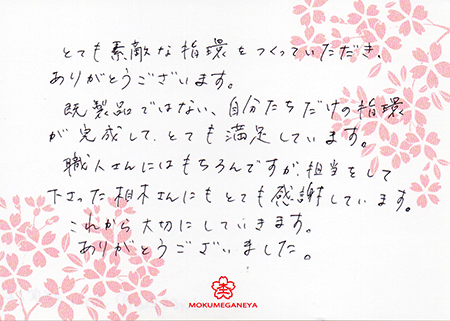 とても素敵な指環をつくっていただき、
ありがとうございます。
既製品ではない、自分たちだけの指環
が完成して、とても満足しています。
職人さんにはもちろんですが、担当をして
下さった相木さんにもとても感謝しています。
これから大切にしていきます。
ありがとうございました。
MOKUMEGANEYA